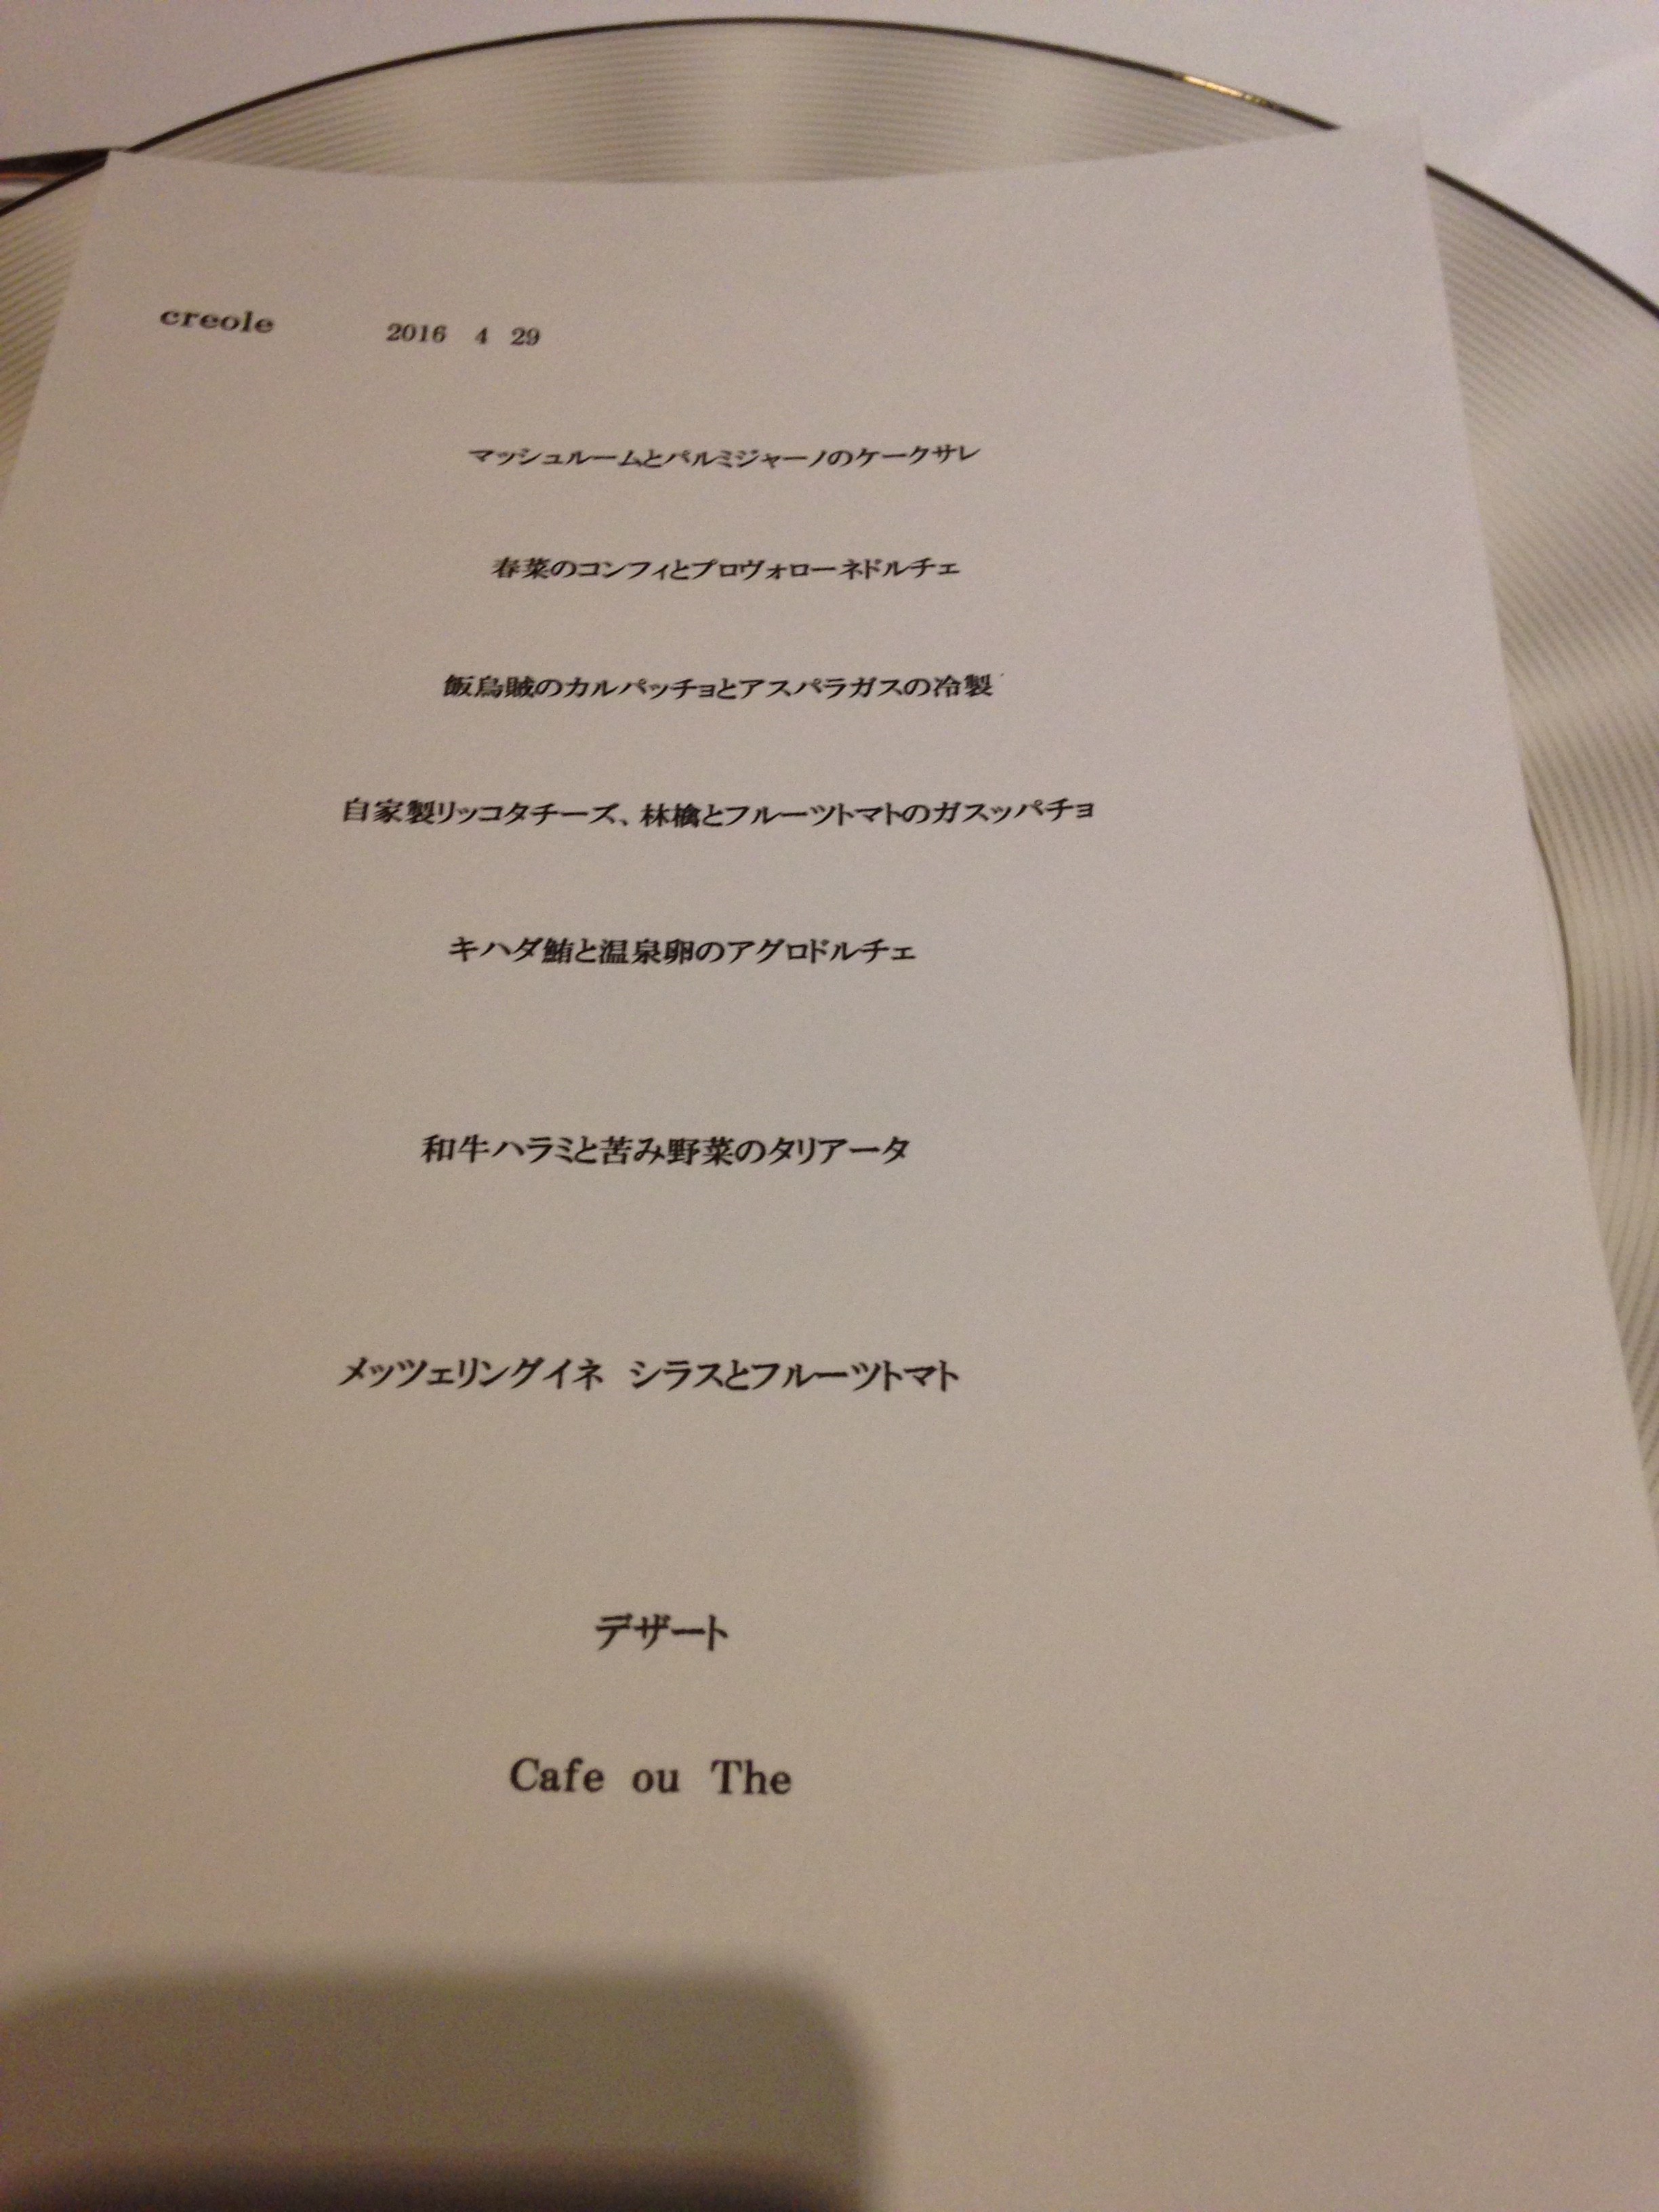 creole 2016 4 29
マッシュルームとパルミジャーノのケークサレ
春菜のコンフィとプロヴォローネドルチェ
飯烏賊のカルパッチョとアスパラガスの冷製
自家製リッコタチーズ、林檎とフルーツトマトのガスッパチョ
キハダ鮪と温泉卵のアグロドルチェ
和牛ハラミと苦み野菜のタリアータ
メッツェリングイネ シラスとフルーツトマト
デザート
Cafe ou The